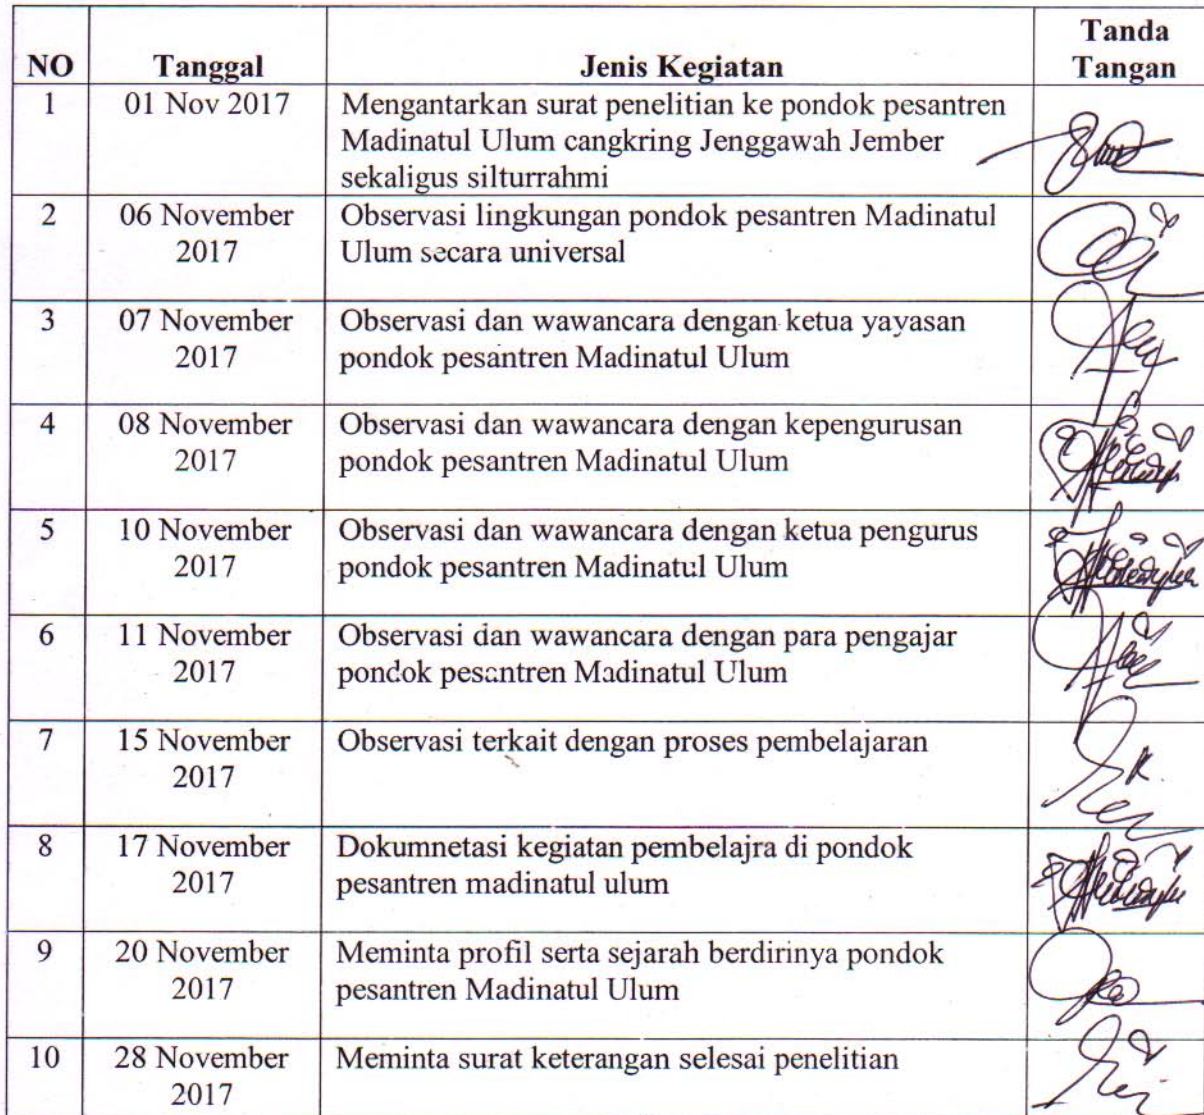 NO Tanggal Jenis Kegiatan Tanda Tangan
1 01 Nov 2017 Mengantarkan surat penelitian ke pondok pesantren
Madinatul Ulum cangkring Jenggawah Jember
sekaligus silturrahmi
2 06 November 2017 Observasi lingkungan pondok pesantren Madinatul
Ulum secara universal
3 07 November 2017 Observasi dan wawancara dengan ketua yayasan
pondok pesantren Madinatul Ulum
4 08 November 2017 Observasi dan wawancara dengan kepengurusan
pondok pesantren Madinatul Ulum
5 10 November 2017 Observasi dan wawancara dengan ketua pengurus
pondok pesantren Madinatul Ulum
6 11 November 2017 Observasi dan wawancara dengan para pengajar
pondok pesantren Madinatul Ulum
7 15 November 2017 Observasi terkait dengan proses pembelajaran
8 17 November 2017 Dokumnetasi kegiatan pembelajra di pondok
pesantren madinatul ulum
9 20 November 2017 Meminta profil serta sejarah berdirinya pondok
pesantren Madinatul Ulum
10 28 November 2017 Meminta surat keterangan selesai penelitian